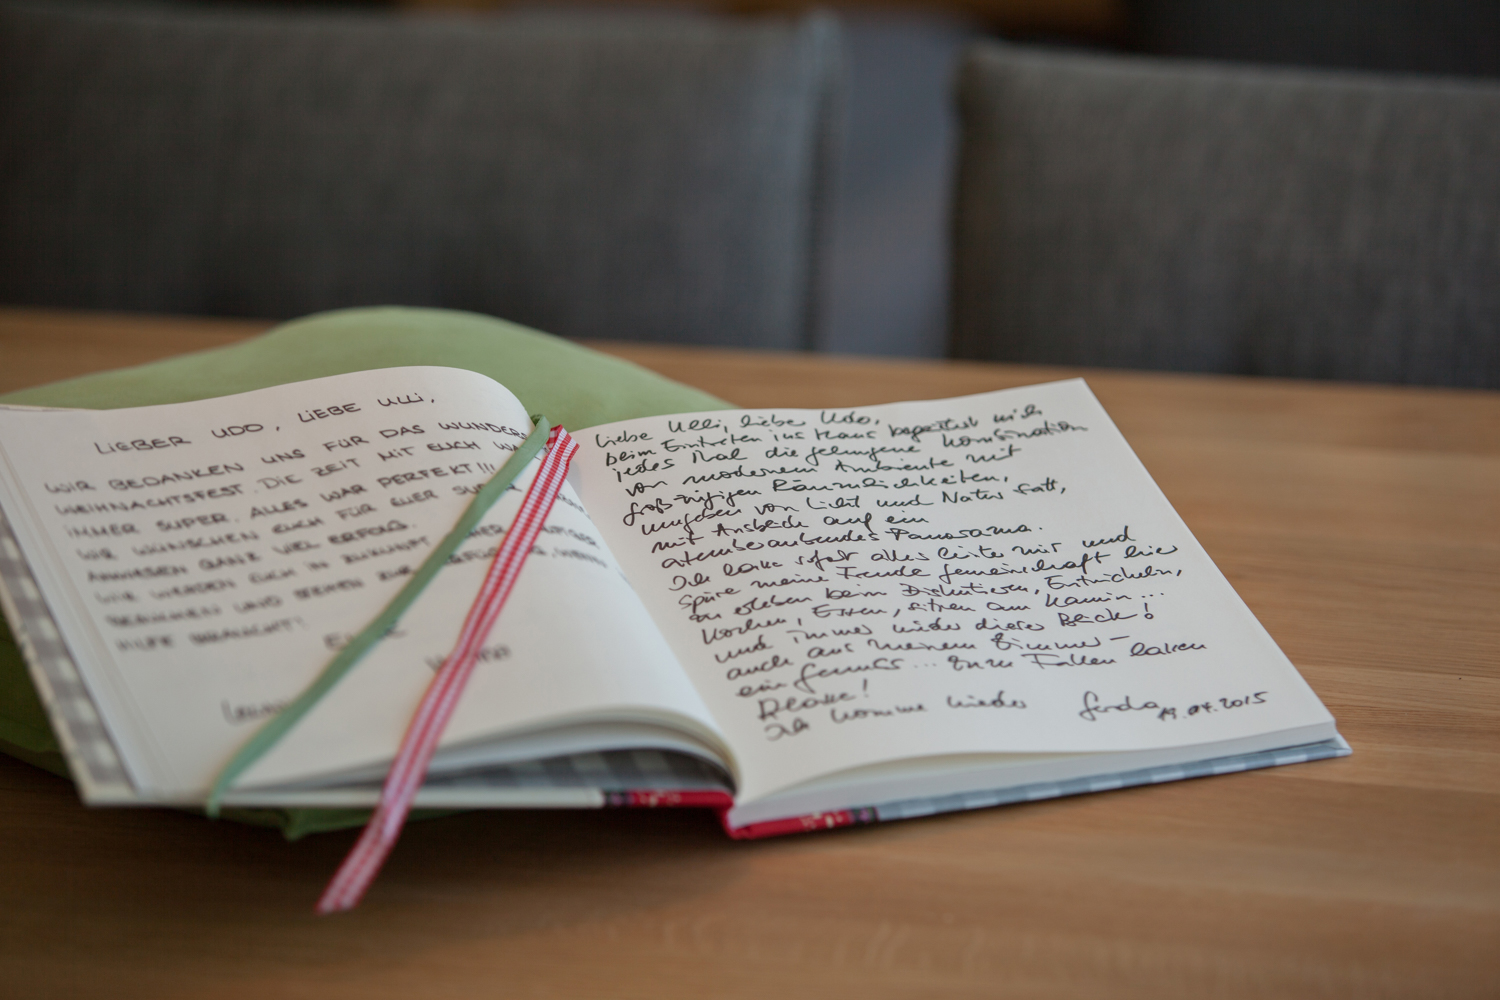 LIEBER UDO, LIEBE ULLI,
WIR BEDANKEN UNS FÜR DAS WUNDERS
WEIHNACHTSFEST. DIE ZEIT MIT EUCH WA
IMMER SUPER. ALLES WAR PERFEKT!!!
WIR WÜNSCHEN EUCH FÜR EUER SUPER
ANWESEN GANZ VIEL ERFOLG.
WIR WERDEN EUCH IN ZUKUNFT
BRAUCHT!
EURE
Liebe Ulli, lieber Udo,
beim Eintreten ins Haus begeistert mich
jedes Mal die gelungene Kombination
von modernem Ambiente mit
großzügigen Räumlichkeiten,
umgeben von Licht und Natur satt,
mit Ausblick auf ein
atemberaubendes Panorama.
Ich lasse sofort alles hinter mir und
spüre meine Freude Gemeinschaft hier
zu erleben beim Diskutieren, Entwickeln,
Kochen, Essen, sitzen am Kamin...
und immer wieder dieser Blick!
auch aus meinem Zimmer –
ein Genuss... Zum Fallen lassen
Danke!
Ich komme wieder Gerda 19.04.2015